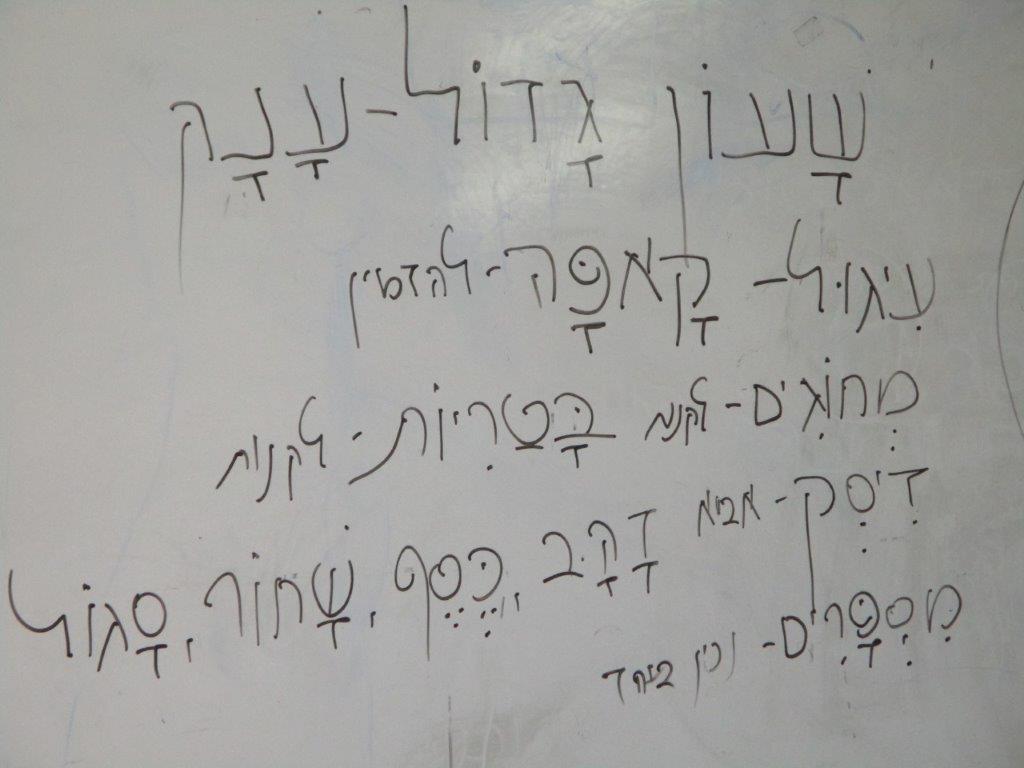 שָׁעוֹן גָדוֹל-עָנָק
עִיגוּל- קָאפָּה-להזמין
מִחוֹגִים-לקנות בָּטרִיוֹת - לקנות
דִיסִק-אביא
זָהָב, כֶּסֶף, שָׁחוֹר, סָגוֹל
מִסִפָּרִים- נכין ביחד